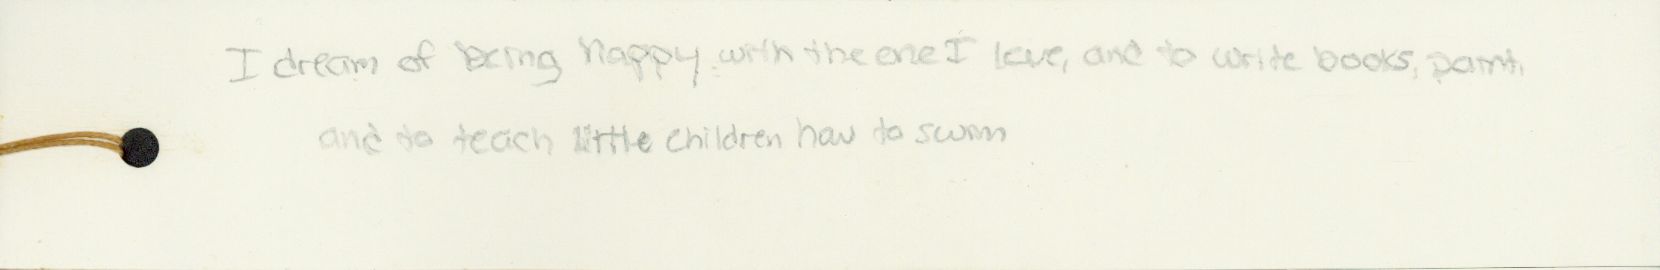 I dream of being happy with the one I love, and to write books, paint,
and to teach little children how to swim